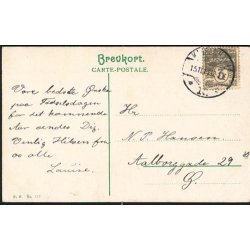 Brevkort.
CARTE-POSTALE.
Vore bedste Ønsker
paa Fødselsdagen
for det kommende
Aar sendes Dig.
Venlig Hilsen fra
os alle
Louise.
Hr
N. P. Hansen
Aalborggade 29
Ø.